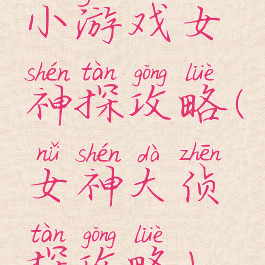 小游戏女
shén tàn gōng lüè
神探攻略(
nǚ shén dà zhēn
女神大侦
tàn gōng lüè
探攻略)